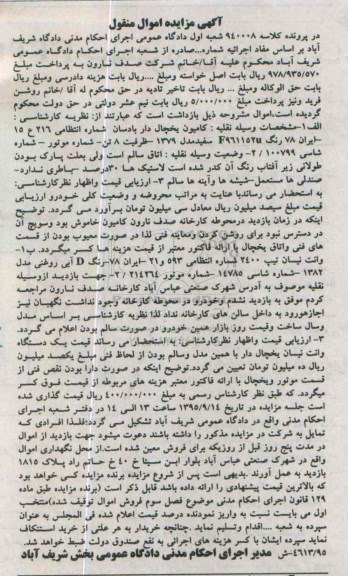 آگهی مزایده اموال منقول
در پرونده کلاسه ۹۴۰۰۰۸ شعبه اول دادگاه عمومی اجرای احکام مدنی دادگاه شریف
آباد بر اساس مفاد اجرائیه شماره...صادره از شعبه اجرای احکام دادگاه عمومی
شریف آباد محکوم علیه آقا/خانم شرکت صدف نارون به پرداخت مبلغ
۹۷۸/۹۳۵/۵۷۰ ریال بابت اصل خواسته ومبلغ ....ریال بابت هزینه دادرسی ومبلغ ریال
بابت حق الوکاله ومبلغ ... ریال بابت تاخیر تادیه در حق محکوم له آقا /خانم روشن
فرید ونیز پرداخت مبلغ ۵/۰۰۰/۰۰۰ ریال بابت نیم عشر دولتی در حق دولت محکوم
گردیده است.اموال مشروحه ذیل بازداشت است که عبارتند از: نظریه کارشناسی :
الف۱-مشخصات وسیله نقلیه : کامیون یخچال دار بادسان شماره انتظامی ۲۱۶ ع ۱۵
-ایران ۷۸ رنگ سفیدمدل ۱۳۷۹ -ظرفیت ۸ تن- شماره موتور - شماره
شاسی ۱۰۰۷۹۹ / ۲- وضعیت وسیله نقلیه : اتاق سالم است ولی بعلت پارک بودن
طولانی زیر آفتاب رنگ آن کدر شده است لاستیک ها ۳۰درصد -باطری ندارد-
صندلی ها مستعمل-شیشه ها وآینه ها سالم ۳- ارزیابی قیمت واظهار نظرکارشناسی:
به استحضار می رساندبا عنایت به مراتب معروضه و وضعیت کلی خودرو ارزیابی
قیمت مبلغ سیصد میلیون ریال معادل سی میلیون تومان برآورد می گردد. توضیح
اینکه در زمان بازدید درمحوطه کارخانه صدف نارون کامیون خاموش بود وسویچ آن
در دسترس نبود برای روشن کردن ومعاینه فنی لذا در صورت معیوب بودن از قسمت
های فنی واتاق یخچال با ارائه فاکتور معتبر از قیمت هزینه ها کسر میگردد. ب۱-
وانت نیسان تیپ ۲۴۰۰ شماره انتظامی ۵۹۳ و۲۱ -ایران ۷۸-رنگ D آبی روغنی مدل
۱۳۸۲ -شماره شاسی ۱۴۷۸۵ -شماره موتور ۲۱۴۲۶۴ / ۲-جهت بازدید ازوسیله
نقلیه موصوف به آدرس شهرک صنعتی عباس آباد کارخانه صدف نارون مراجعه
کردم موفق به بازدید نشدم وخودرو در محوطه کارخانه وجود نداشت نگهبان نیز
اجازهورود به داخل سالن های کارخانه نداد لذا نظریه کارشناسی بر اساس مدل
وسال ساخت وقیمت روز بازار همین خودرو در صورت سالم بودن اعلام می گردد.
۳- ارزیابی قیمت واظهار نظرکارشناسی: به استحضار می رساند قیمت یک دستگاه
وانت نیسان یخچال دار با همین مدل وسالم بودن از لحاظ فنی مبلغ یکصد میلیون
ریال ده میلیون تومان تعیین می گردد.توضیح اینکه در صورت دارا بودن نقص فنی از
قسمت موتور ویخچال با ارائه فاکتور معتبر هزینه های مربوطه از قیمت فوق کسر
میگردد. که طبق نظر کارشناس رسمی به مبلغ ۴۰۰/۰۰۰/۰۰۰ ریال قیمت گذاری شده
است جلسه مزایده در تاریخ ۱۳۹۵/۹/۱۴ ساعت ۱۳ الی ۱۴ در دفتر شعبه اجرای
احکام مدنی واقع در دادگاه عمومی شریف آباد تشکیل می گردد؛فلذا افرادی که
تمایل به شرکت در مزایده مذکور را داشته باشند دعوت میشود جهت بازدید از اموال
در مدت پنج روز قبل از روزیکه برای فروش معین شده است.از محل نگهداری اموال
واقع در شهرک صنعتی عباس آباد بلوار ابن سینا خ ۴۰ خ خیام راد پلاک ۱۸۱۵
بازدید به عمل آورند .بدیهی است پس از شروع مزایده برنده مزایده کسی خواهد بود
که بالاترین قیمت پیشنهادی را ارائه داده باشد قابل ذکر است (برنده مزایده طبق ماده
۱۲۹ قانون اجرای احکام مدنی موضوع فصل سوم فروش اموال توقیف شده)منتخب
اول می بایست نسبت به واریز نمودنده درصد قیمت اعلام شده فی المجلس به عنوان
سپرده به شعبه ....اقدام وتسلیم نماید .چنانچه خریدار به هر علتی از خرید استنکاف
نماید سپرده ایشان با کسر هزینه های اجرائی به نفع صندوق دولت ضبط خواهد شد.
۴۶۱۳/۹۵-ش مدیر اجرای احکام مدنی دادگاه عمومی بخش شریف آباد